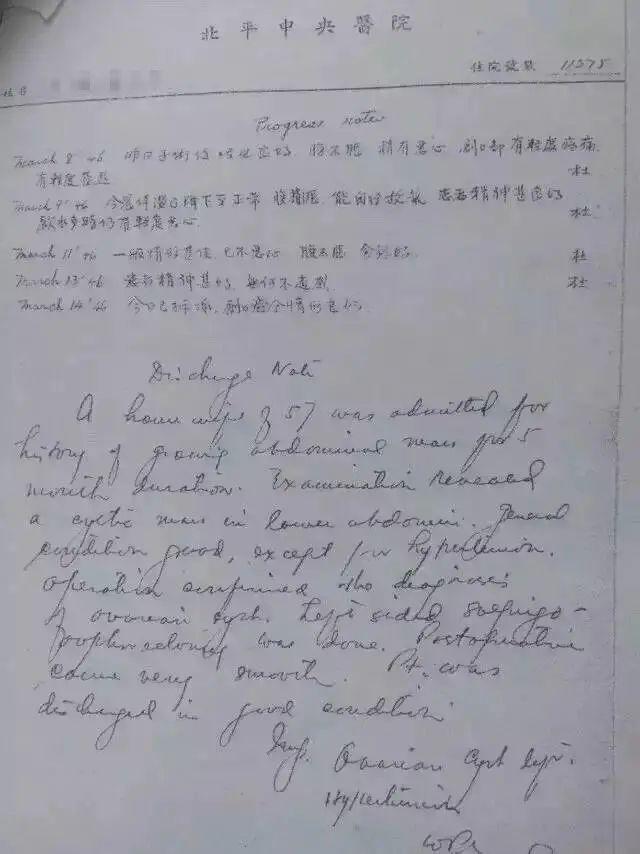 北平中央醫院
住院號數 11375
Progress Notes
March 8 '46 昨日手術後 良好, 腹不脹 稍有惡心, 創口部有輕度疼痛
有輕度 杜
March 9 '46 今晨体溫已降下至正常 腹 能自 患者精神甚良好
飲水多時仍有輕度惡心 杜
March 11 '46 一般情形甚佳, 已不惡心 腹不脹 杜
March 13 '46 患者精神甚好, 無何不適感 杜
March 14 '46 今日已拆線, 創口癒合情形良好.
Discharge Note
A housewife of 57 was admitted for
history of growing abdominal mass for 5
month duration. Examination revealed
a cystic mass in lower abdomen. General
condition good, except for hypertension.
operation confirmed the diagnosis
of ovarian cyst. Left sided salpingo-
oophorectomy was done. Postoperative
course very smooth. Pt. was
discharged in good condition.
Imp. Ovarian Cyst left.
Hypertension